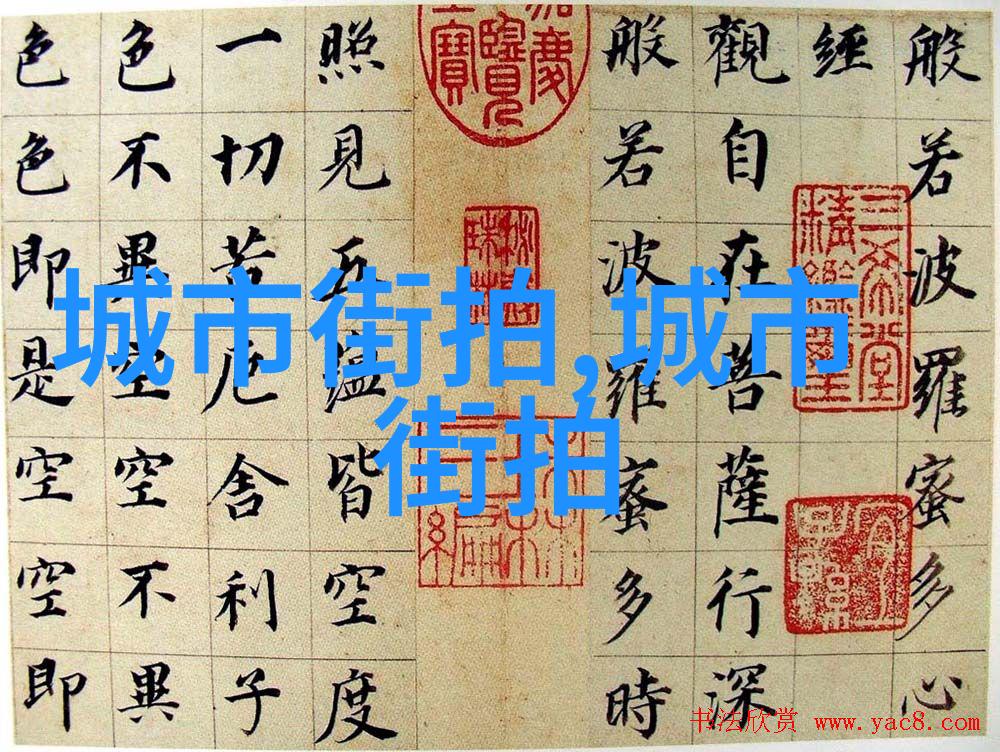 般若波羅蜜多心
經
觀自在菩薩行深
般若波羅蜜多時
照見五蘊皆空度
一切苦厄舍利子
色不異空空不異
色色即是空空即
三希堂
精鑑璽
城市街拍,城市
街拍
书法欣赏 www.yac8.com